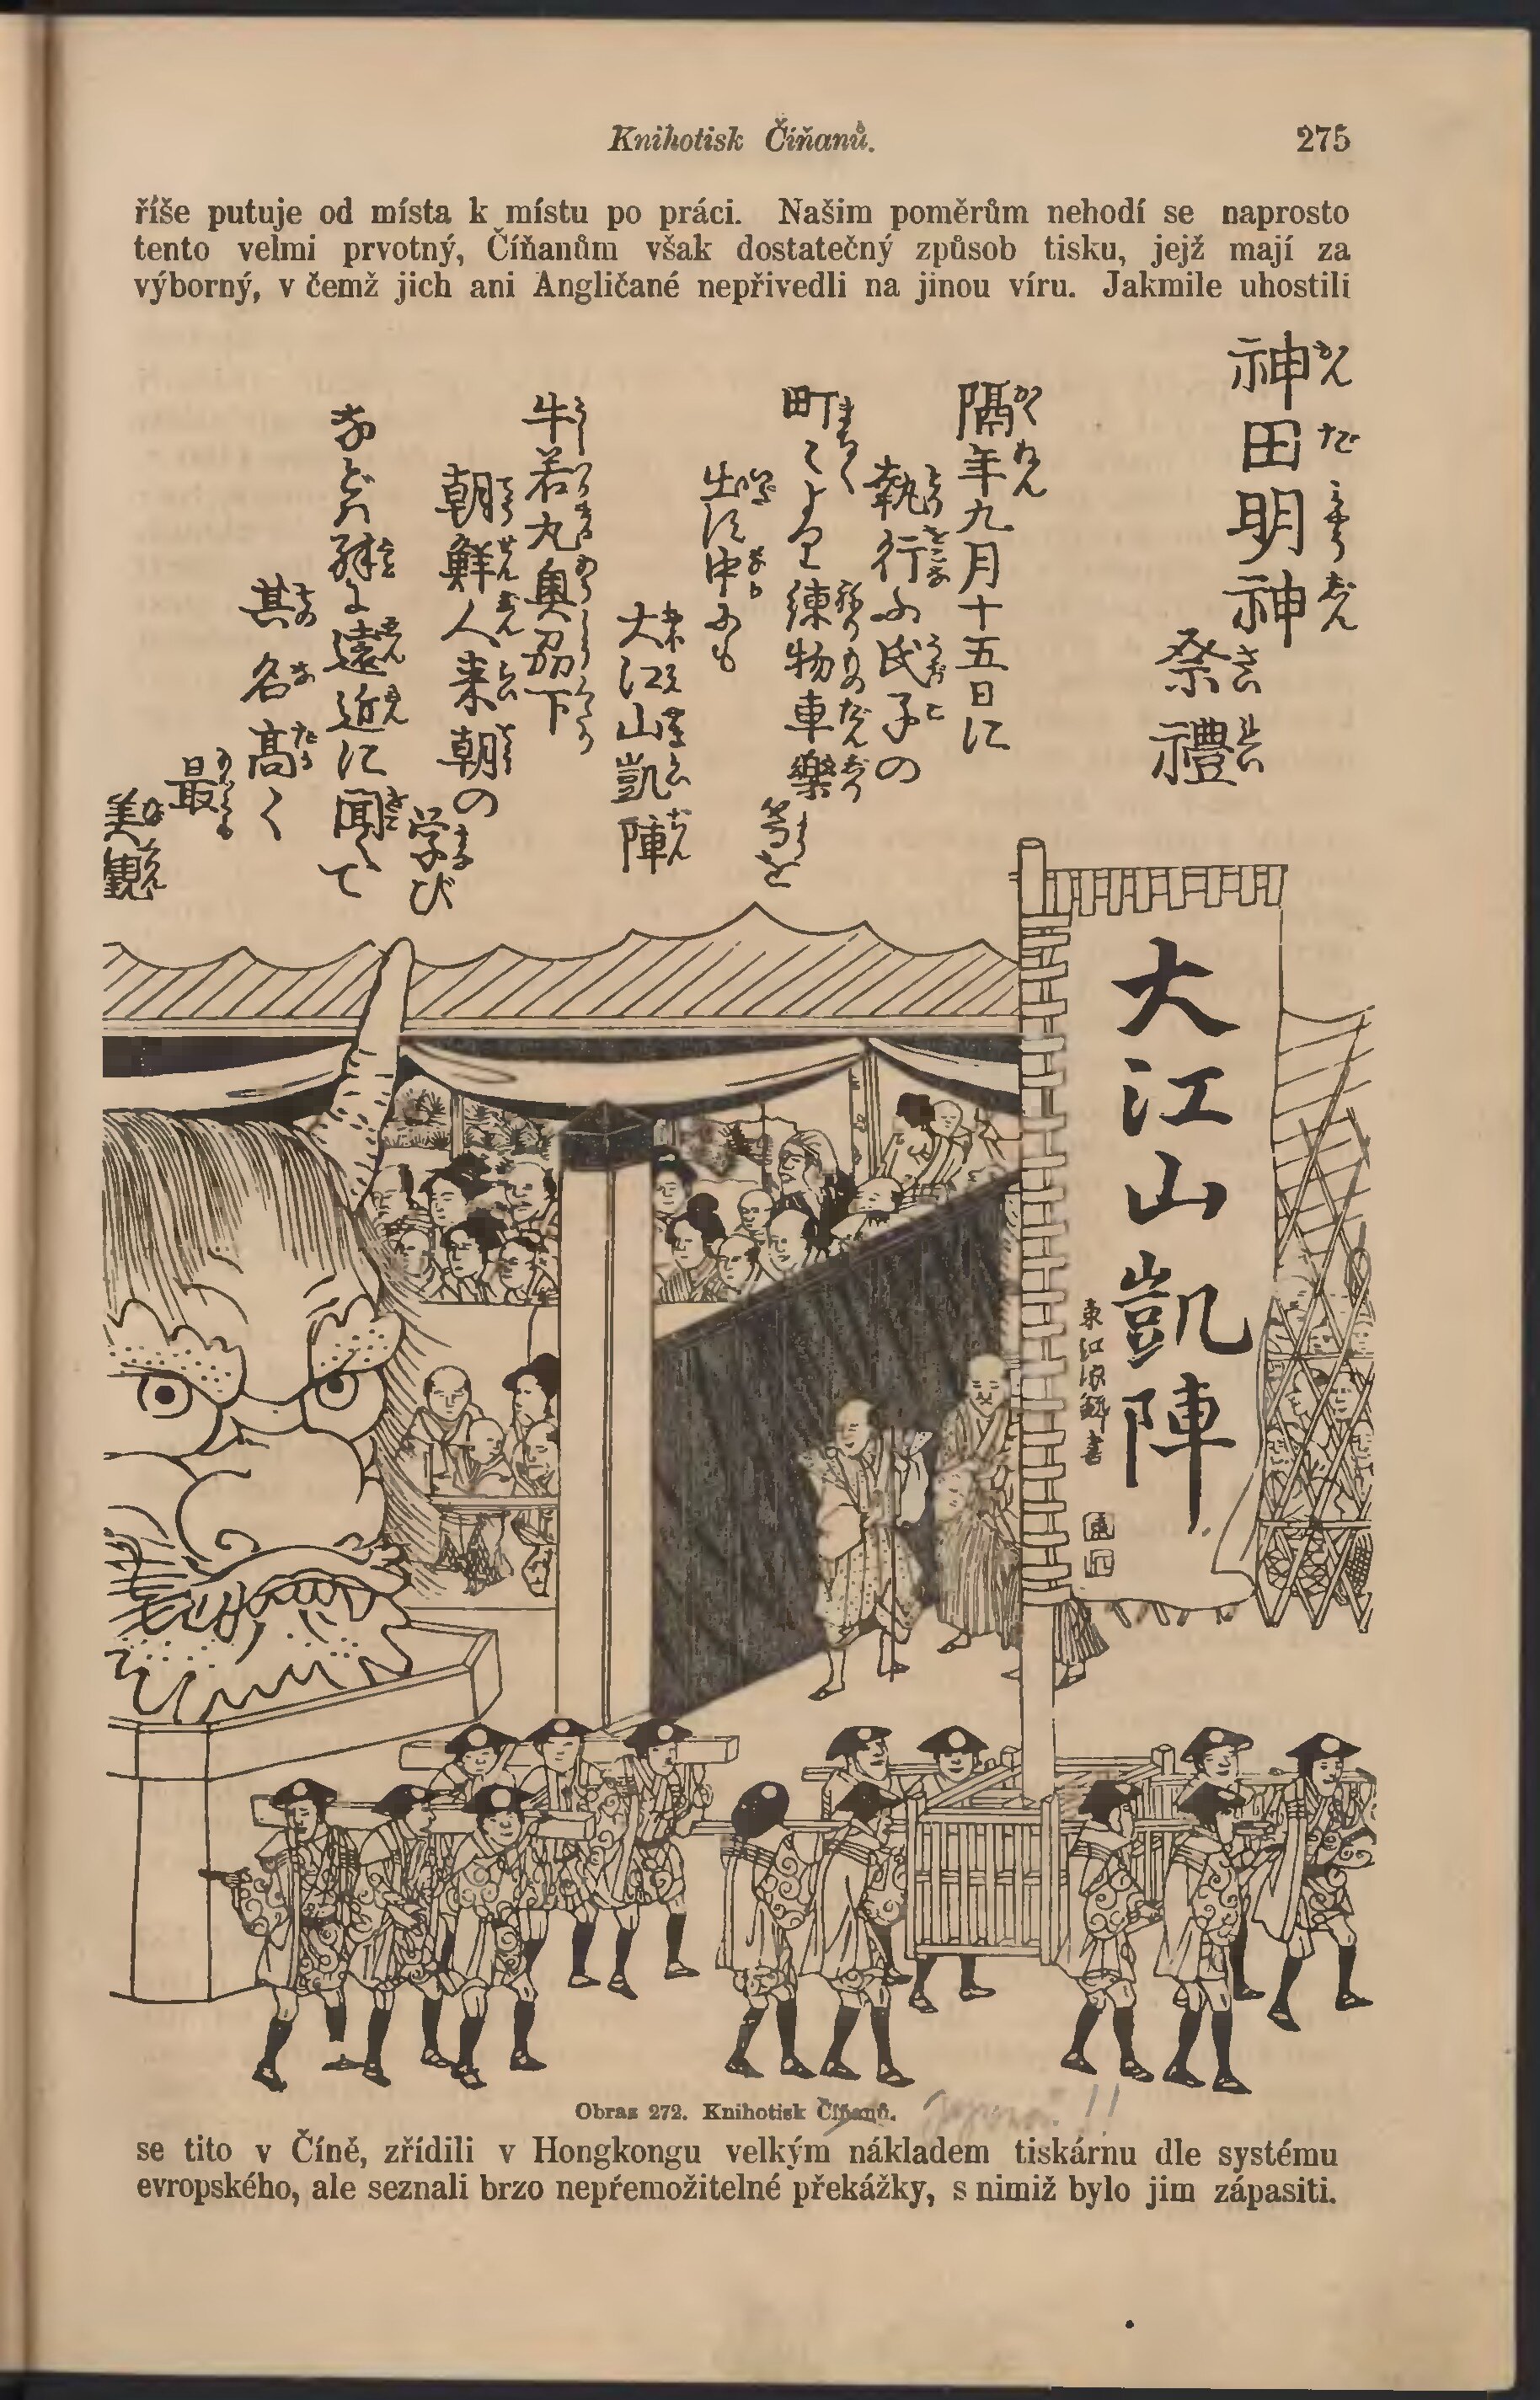 Knihotisk Číňanů.
275
říše putuje od místa k místu po práci. Našim poměrům nehodí se naprosto
tento velmi prvotný, Číňanům však dostatečný způsob tisku, jejž mají za
výborný, v čemž jich ani Angličané nepřivedli na jinou víru. Jakmile uhostili
神田明神
かんだみやうじん
祭禮
さいれい
隔年九月十五日に
かくねん
執行ふ氏子の
町てより練物車樂
ねりものだんじり
等を
出す中にも
大江山凱陣
牛若丸奥州下
朝鮮人来朝の
学び
まなび
など殊に遠近に聞へて
其名高く
最
美観
大江山凱陣
東江源鱗書
Obraz 272. Knihotisk Číňanů.
!!
se tito v Číně, zřídili v Hongkongu velkým nákladem tiskárnu dle systému
evropského, ale seznali brzo nepřemožitelné překážky, s nimiž bylo jim zápasiti.